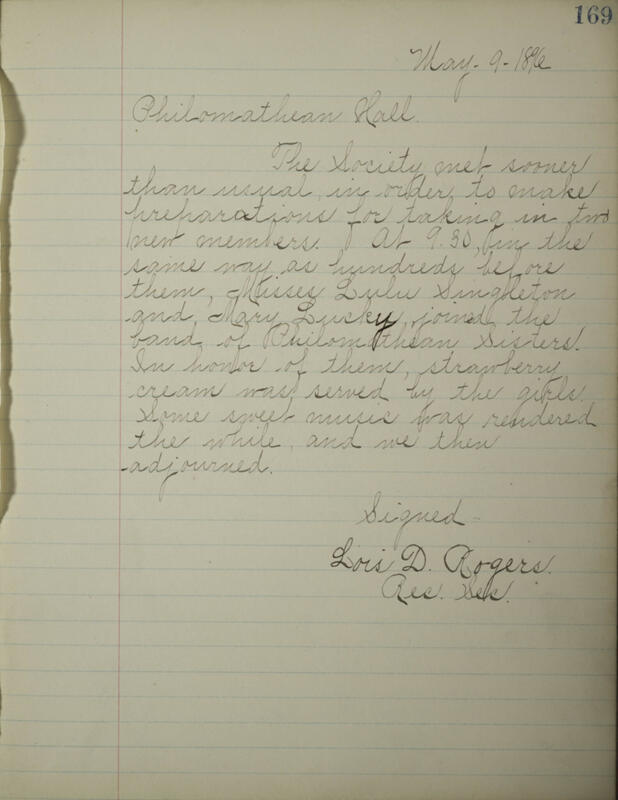 169
May - 9 - 1896
Philomathean Hall.
The Society met sooner
than usual, in order to make
preparations for taking in two
new members. At 9.30, in the
same way as hundreds before
them, Misses Lulu Singleton
and Mary Lusky, joined the
band of Philomathean Sisters.
In honor of them, strawberry
cream was served by the girls.
Some sweet music was rendered
the while, and we then
adjourned.
Signed -
Lois D. Rogers.
Rec. Sec.